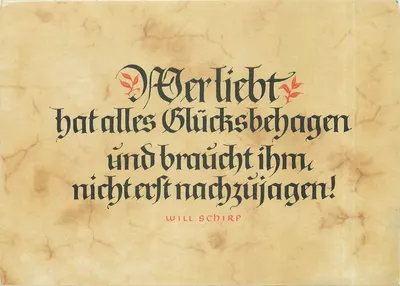 Wer liebt
hat alles Glücksbehagen
und braucht ihm,
nicht erst nachzujagen!
WILL SCHIRP